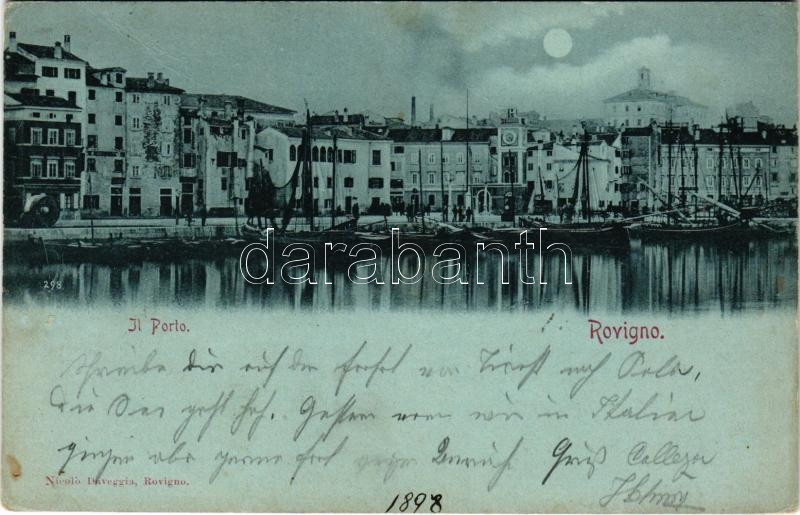 298
darabanth
Il Porto.
Rovigno.
Schreibe dir auf der Fahrt von Triest nach Pola,
die See geht hoch. Gestern waren wir in Italien
gingen aber gerne fort Gruß
Nicolò Daveggia, Rovigno.
1898